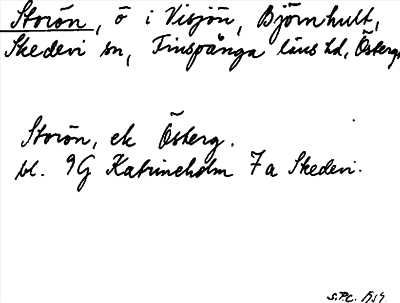 Storön, ö i Visjön, Björnhult,
Skedevi sn, Finspånga läns hd, Österg.
Storön, ek Österg.
bl. 9G Katrineholm 7a Skedevi.